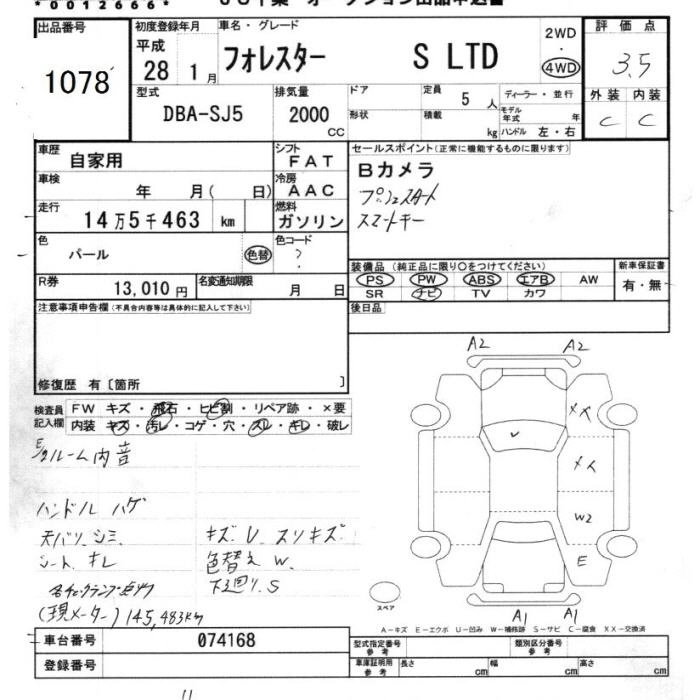 *0012666*
出品番号
1078
初度登録年月
平成
28 1月
車名・グレード
フォレスター S LTD
2WD
・
4WD
評価点
3.5
外装 内装
C C
型式
DBA-SJ5
排気量
2000
CC
ドア
形状
定員
5人
積載
kg
ディーラー・並行
モデル
年式 年
ハンドル 左・右
車歴
自家用
シフト
FAT
車検
年 月( 日)
冷房
AAC
走行
14万5千463 km
燃料
ガソリン
色
パール
色替
色コード
?
R券
13,010円
名変通知期限
月 日
セールスポイント(正常に機能するものに限ります)
Bカメラ
プッシュスタート
スマートキー
装備品(純正品に限り○をつけてください)
PS PW ABS エアB AW
SR ナビ TV カワ
新車保証書
有・無
後日品
注意事項申告欄(不具合内容等は具体的に記入して下さい)
修復歴 有〔箇所 〕
検査員
記入欄
FW キズ・飛石・ヒビ割・リペア跡・×要
内装 キズ・汚レ・コゲ・穴・スレ・キレ・破レ
E/gルーム内音
ハンドル ハゲ
天バリ、シミ
シート、キレ
キズ U スリキズ
色替え W
下廻り、S
(現メーター) 145,483km
A2 A2
XX
U
XX
W2
E
スペア
A1 A1
A-キズ E-エクボ U-凹み W-補修跡 S-サビ C-腐食 XX-交換済
車台番号
074168
登録番号
型式指定番号
参考
類別区分番号
参考
車庫証明用
参考
長さ cm
幅 cm
高さ cm